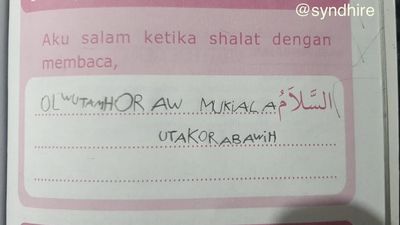 @syndhire
Aku salam ketika shalat dengan
membaca,
OLWUTAMHOR AW MUKIALA السَّلاَمُ
UTAKORABAWIH